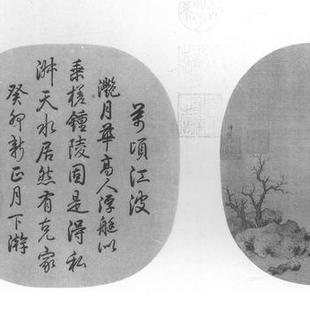 萬頃江波
灔月華高人浮艇似
乘槎鍾陵固是得私
淑天水居然有克家
癸卯新正月下澣